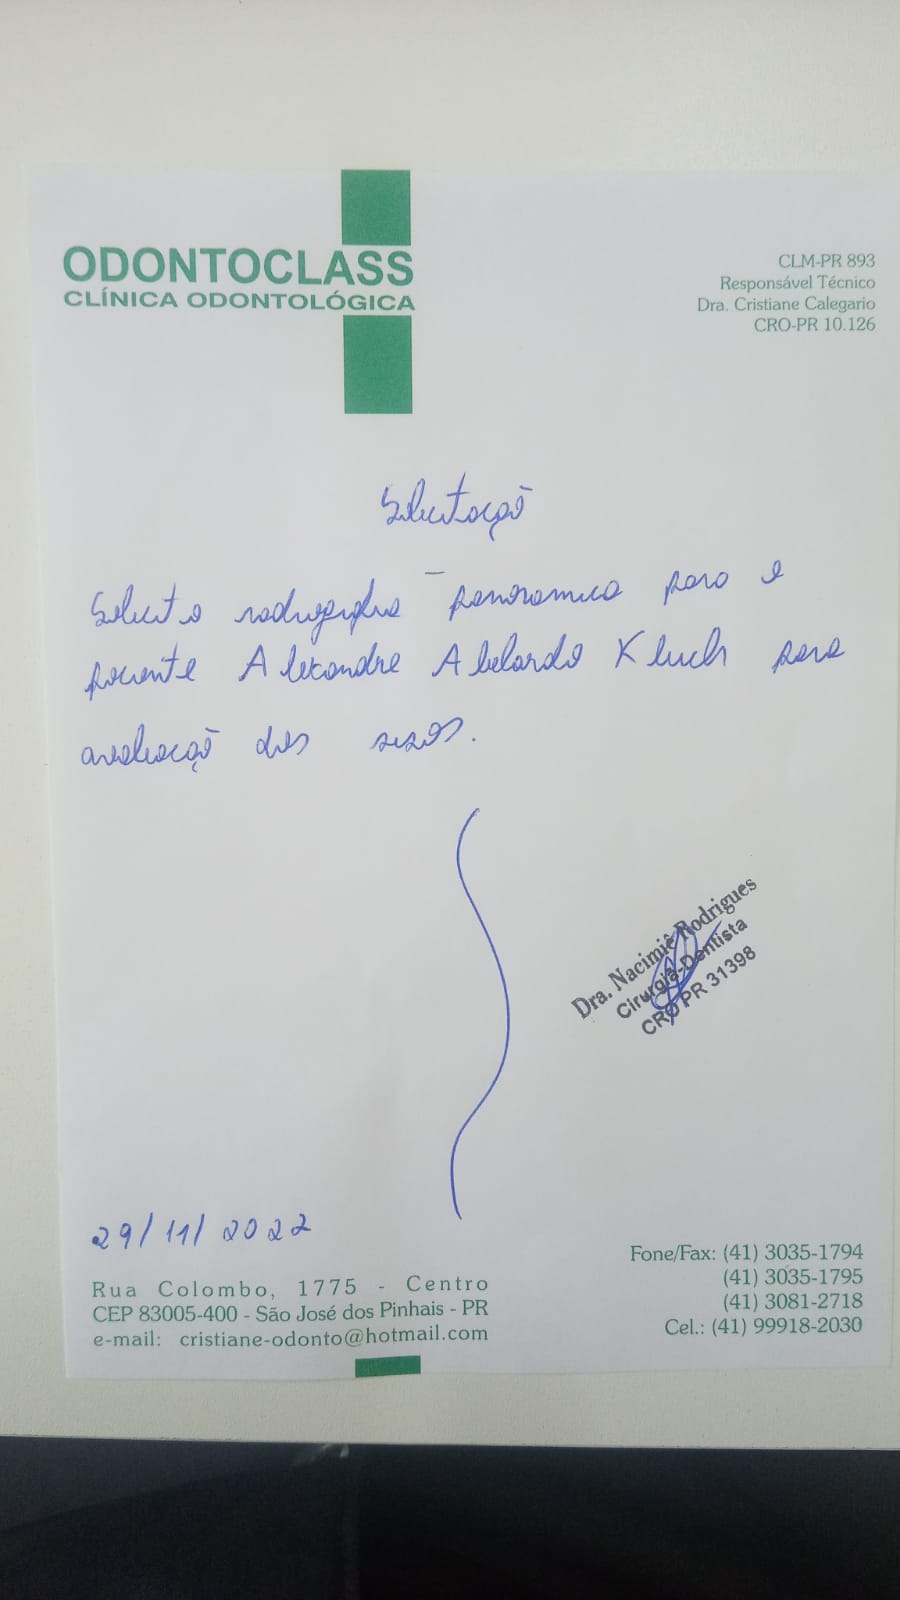 ODONTOCLASS
CLÍNICA ODONTOLÓGICA
CLM-PR 893
Responsável Técnico
Dra. Cristiane Calegario
CRO-PR 10.126
Solicitação
Solicito radiografia panoramica para o
paciente Alexandre Abelardo Kluch para
avaliação dos sisos.
Dra. Nacimiê Rodrigues
Cirurgiã-Dentista
CRO PR 31398
29/11/2022
Rua Colombo, 1775 - Centro
CEP 83005-400 - São José dos Pinhais - PR
e-mail: cristiane-odonto@hotmail.com
Fone/Fax: (41) 3035-1794
(41) 3035-1795
(41) 3081-2718
Cel.: (41) 99918-2030